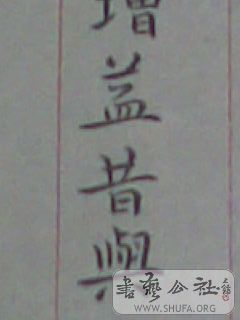 增益昔與
書藝公社
WWW.SHUFA.ORG